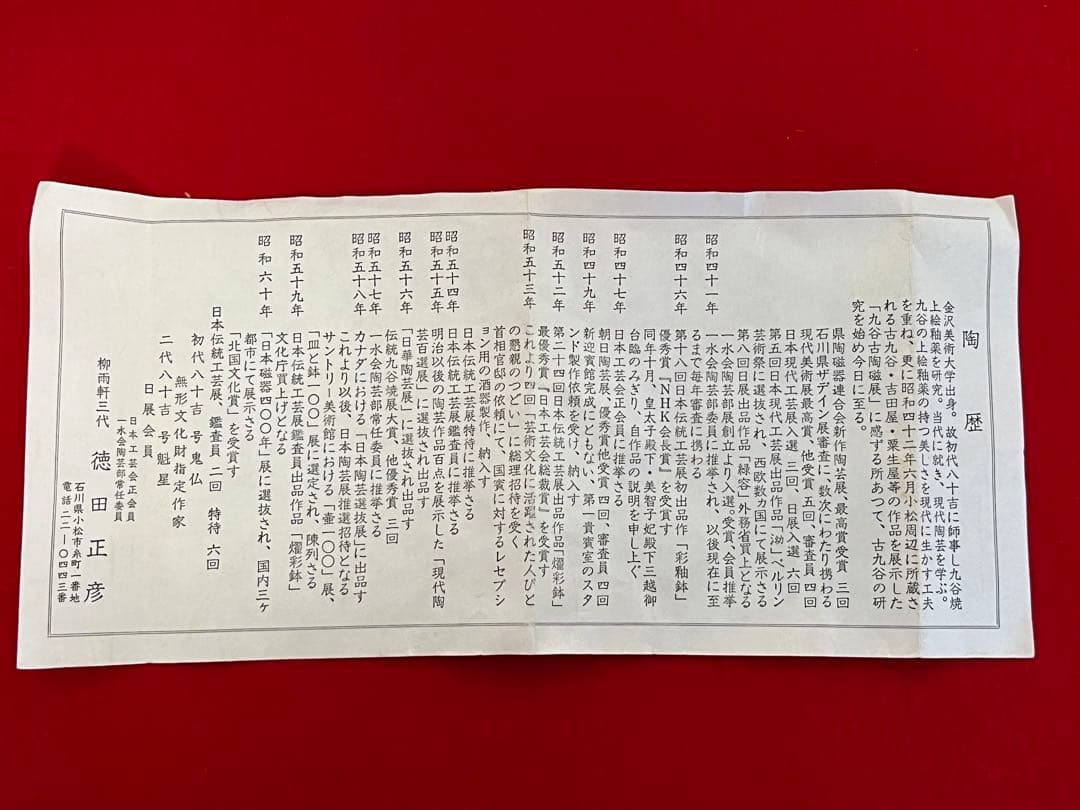 陶歴
金沢美術大学出身。故初代八十吉に師事し九谷焼
上絵釉薬を研究。当代に就き、現代陶芸を学ぶ。
九谷の上絵釉薬の持つ美しさを現代に生かす工夫
を重ね、更に昭和四十二年六月小松周辺に所蔵さ
れる古九谷・吉田屋・粟生屋等の作品を展示した
「九谷古陶磁展」に感ずる所あつて、古九谷の研
究を始め今日に至る。
県陶磁器連合会新作陶芸展、最高賞受賞 三回
石川県デザイン展審査に数次にわたり携わる
現代美術展最高賞、他受賞 五回、審査員 四回
日本現代工芸展入選 三回、日展入選 六回
第五回日本現代工芸展出品作品「泑」ベルリン
芸術祭に選抜され、西欧数ヵ国にて展示さる
第八回日展出品作品「緑容」外務省買上となる
昭和四十一年 一水会陶芸部展創立より入選。受賞、会員推挙
一水会陶芸部委員に推挙され、以後現在に至
るまで毎年審査に携わる
昭和四十六年 第十八回日本伝統工芸展初出品作「彩釉鉢」
優秀賞『NHK会長賞』を受賞す
同年十月、皇太子殿下・美智子妃殿下三越御
台臨のみぎり、自作品の説明を申し上ぐ
昭和四十七年 日本工芸会正会員に推挙さる
朝日陶芸展、優秀賞他受賞 四回、審査員 四回
昭和四十九年 新迎賓館完成にともない、第一貴賓室のスタ
ンド製作依頼を受け、納入す
昭和五十二年 第二十四回日本伝統工芸展出品作品「燿彩鉢」
最優秀賞『日本工芸会総裁賞』を受賞す
昭和五十三年 これより四回「芸術文化に活躍された人びと
の懇親のつどい」に総理招待を受く
首相官邸の依頼にて、国賓に対するレセプシ
ョン用の酒器製作、納入す
日本伝統工芸展特待に推挙さる
昭和五十四年 日本伝統工芸展鑑査員に推挙さる
昭和五十五年 明治以後の陶芸作品百点を展示した「現代陶
芸百選展」に選抜され出品す
昭和五十六年 「日華陶芸展」に選抜され出品す
伝統九谷焼展大賞、他優秀賞 三回
昭和五十七年 一水会陶芸部常任委員に推挙さる
昭和五十八年 カナダにおける「日本陶芸選抜展」に出品す
これより以後、日本陶芸展推選招待となる
サントリー美術館における「壷一〇〇」展、
「皿と鉢一〇〇」展に選定され、陳列さる
昭和五十九年 日本伝統工芸展鑑査員出品作品「燿彩鉢」
文化庁買上げとなる
昭和六十年 「日本磁器四〇〇年」展に選抜され、国内三ヶ
都市にて展示さる
「北国文化賞」を受賞す
日本伝統工芸展、鑑査員 二回 特待 六回
初代八十吉 号鬼仏
無形文化財指定作家
二代八十吉 号魁星
日展会員
柳雨軒三代 徳田正彦
日本工芸会正会員
一水会陶芸部常任委員
石川県小松市糸町一番地
電話 二二―〇四四三番